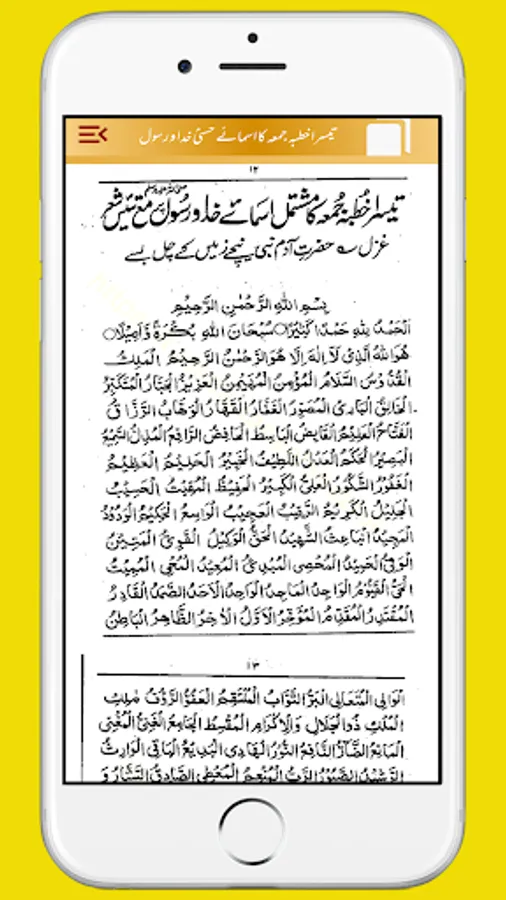 تیسرا خطبہ جمعہ کا اسمائے حسنیٰ خدا و رسول
۱۲
تیسرا خُطبہ جُمعہ کا مشتمل اسمائے خدا و رسول صلی اللہ علیہ وسلم مع
غزل حضرت آدم نبی نیچے زمیں کے چل بسے
بِسْمِ اللّٰهِ الرَّحْمٰنِ الرَّحِيْمِ
اَلْحَمْدُ لِلّٰهِ حَمْدًا كَثِيْرًا ○ سُبْحَانَ اللّٰهِ بُكْرَةً وَّاَصِيْلًا ○
هُوَ اللّٰهُ الَّذِىْ لَآ اِلٰهَ اِلَّا هُوَ الرَّحْمٰنُ الرَّحِيْمُ الْمَلِكُ
الْقُدُّوْسُ السَّلَامُ الْمُؤْمِنُ الْمُهَيْمِنُ الْعَزِيْزُ الْجَبَّارُ الْمُتَكَبِّرُ
الْخَالِقُ الْبَارِئُ الْمُصَوِّرُ الْغَفَّارُ الْقَهَّارُ الْوَهَّابُ الرَّزَّاقُ
الْفَتَّاحُ الْعَلِيْمُ الْقَابِضُ الْبَاسِطُ الْخَافِضُ الرَّافِعُ الْمُذِلُّ السَّمِيْعُ
الْبَصِيْرُ الْحَكَمُ الْعَدْلُ اللَّطِيْفُ الْخَبِيْرُ الْحَلِيْمُ الْعَظِيْمُ
الْغَفُوْرُ الشَّكُوْرُ الْعَلِىُّ الْكَبِيْرُ الْحَفِيْظُ الْمُقِيْتُ الْحَسِيْبُ
الْجَلِيْلُ الْكَرِيْمُ الرَّقِيْبُ الْمُجِيْبُ الْوَاسِعُ الْحَكِيْمُ الْوَدُوْدُ
الْمَجِيْدُ الْبَاعِثُ الشَّهِيْدُ الْحَقُّ الْوَكِيْلُ الْقَوِىُّ الْمَتِيْنُ
الْوَلِىُّ الْحَمِيْدُ الْمُحْصِى الْمُبْدِئُ الْمُعِيْدُ الْمُحْىِ الْمُمِيْتُ
الْحَىُّ الْقَيُّوْمُ الْوَاجِدُ الْمَاجِدُ الْوَاحِدُ الْاَحَدُ الصَّمَدُ الْقَادِرُ
الْمُقْتَدِرُ الْمُقَدِّمُ الْمُؤَخِّرُ الْاَوَّلُ الْاٰخِرُ الظَّاهِرُ الْبَاطِنُ
۱۳
الْوَالِى الْمُتَعَالِى الْبَرُّ التَّوَّابُ الْمُنْتَقِمُ الْعَفُوُّ الرَّؤُفُ مٰلِكُ
الْمُلْكِ ذُو الْجَلَالِ وَالْاِكْرَامِ الْمُقْسِطُ الْجَامِعُ الْغَنِىُّ الْمُغْنِى
الْمَانِعُ الضَّارُّ النَّافِعُ النُّوْرُ الْهَادِى الْبَدِيْعُ الْبَاقِى الْوَارِثُ
الرَّشِيْدُ الصَّبُوْرُ الرَّبُّ الْمُنْعِمُ الْمُعْطِى الصَّادِقُ السَّتَّارُ وَ